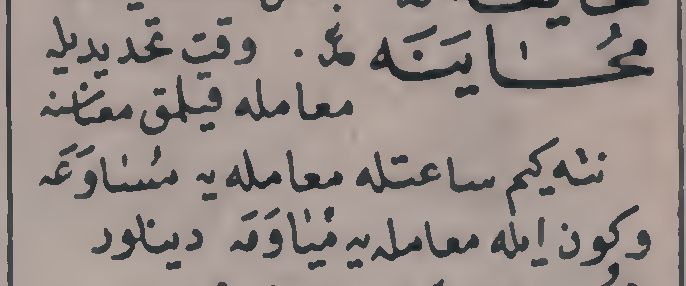 مُحَايَنَه مد. وقت تحديديله
معامله قيلمق معناسنه
نته كيم ساعتله معامله يه مُسَاوَعَه
وكون ايله معامله يه مُيَاوَمَه دينلور